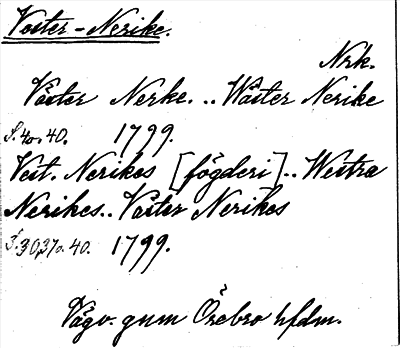 Väster-Nerike.
Nrk.
Väster Nerke... Wäster Nerike
S. 4 o. 40. 1799.
Vest. Nerikes [fögderi]... Westra
Nerikes... Väster Nerikes
S. 30, 37 o. 40. 1799.
Vägv. gnm Örebro hfdm.